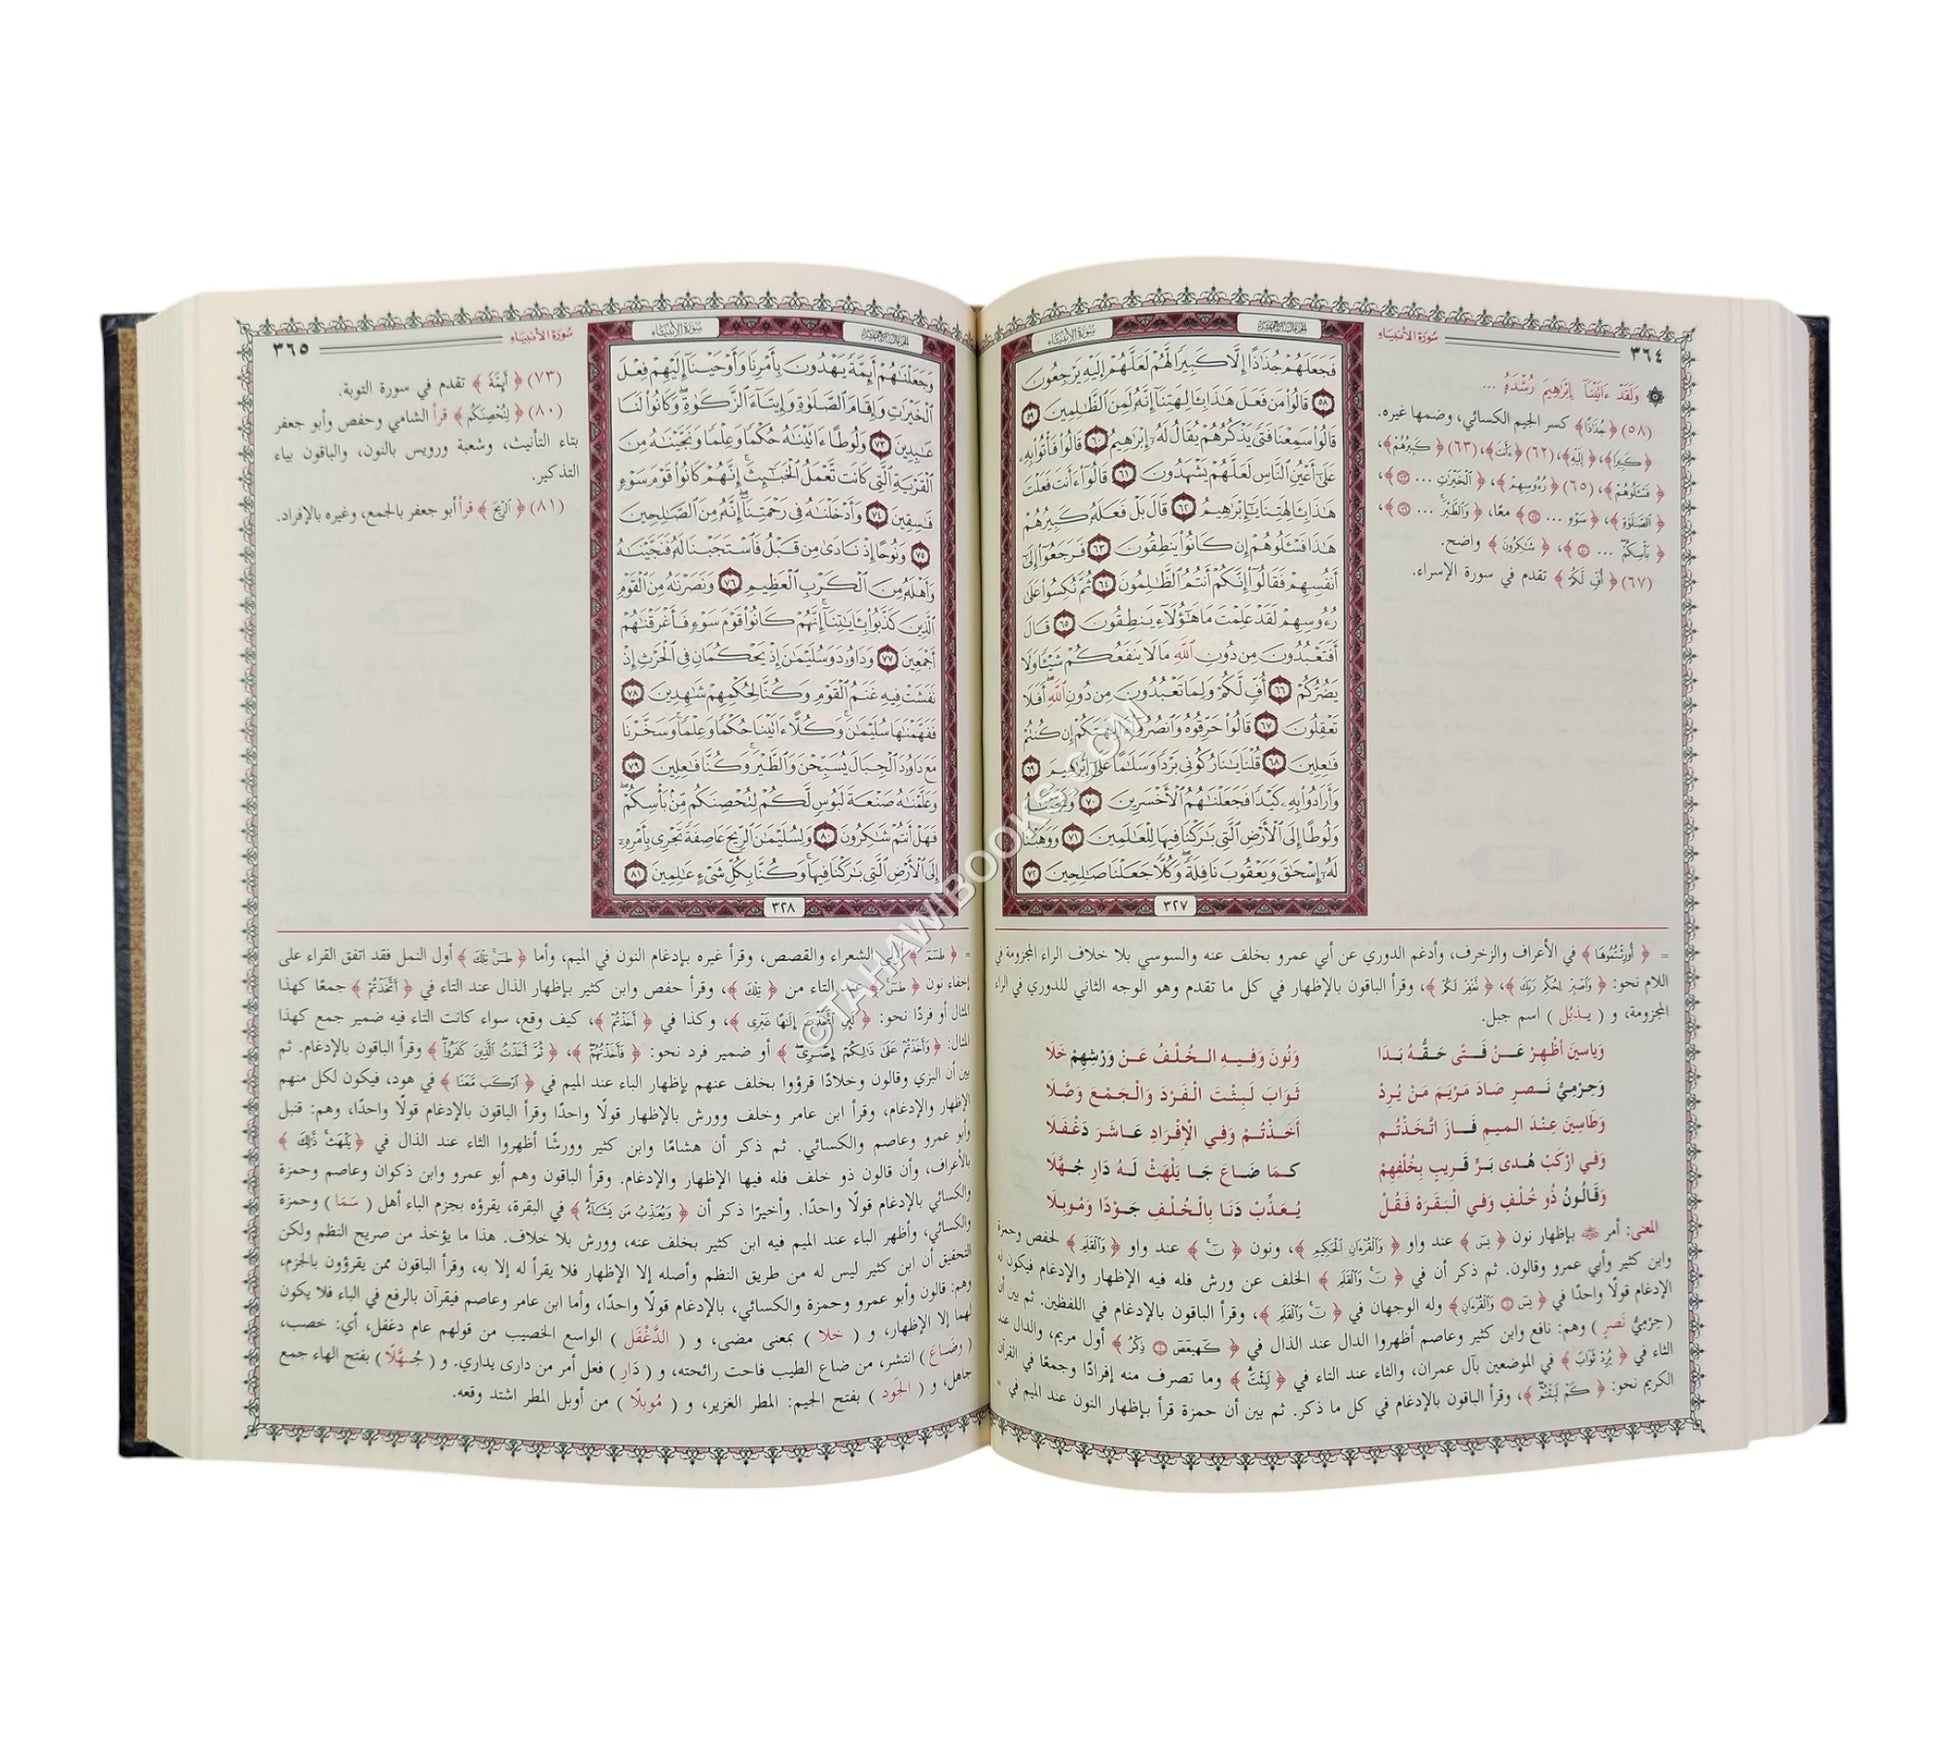 ٣٦٤
سُورَةُ الأَنبِيَاءِ
وَلَقَدْ ءَاتَيْنَآ إِبْرَاهِيمَ رُشْدَهُ ...
(٥٨) ﴿ جُذَاذًا ﴾ كسر الجيم الكسائي، وضمها غيره.
﴿ كَبِيرًا ﴾، ﴿ إِلَيْهِ ﴾، (٦٢) ﴿ ءَأَنتَ ﴾، (٦٣) ﴿ كَبِيرُهُمْ ﴾،
﴿ فَسْـَٔلُوهُمْ ﴾، (٦٥) ﴿ رُءُوسِهِمْ ﴾، ﴿ ٱلْخَيْرَٰتِ ... ﴾،
﴿ ٱلصَّلَوٰةِ ﴾، ﴿ سَوْءٍ ... ﴾ معًا، ﴿ وَٱلطَّيْرَ ... ﴾،
﴿ بَأْسِكُمْ ... ﴾، ﴿ شَٰكِرُونَ ﴾ واضح.
(٦٧) ﴿ أُفٍّ لَّكُمْ ﴾ تقدم في سورة الإسراء.
سُورَةُ الأَنبِيَاءِ
فَجَعَلَهُمْ جُذَٰذًا إِلَّا كَبِيرًا لَّهُمْ لَعَلَّهُمْ إِلَيْهِ يَرْجِعُونَ
٥٨ قَالُوا۟ مَن فَعَلَ هَٰذَا بِـَٔالِهَتِنَآ إِنَّهُۥ لَمِنَ ٱلظَّٰلِمِينَ ٥٩
قَالُوا۟ سَمِعْنَا فَتًى يَذْكُرُهُمْ يُقَالُ لَهُۥٓ إِبْرَٰهِيمُ ٦٠ قَالُوا۟ فَأْتُوا۟ بِهِۦ
عَلَىٰٓ أَعْيُنِ ٱلنَّاسِ لَعَلَّهُمْ يَشْهَدُونَ ٦١ قَالُوٓا۟ ءَأَنتَ فَعَلْتَ
هَٰذَا بِـَٔالِهَتِنَا يَٰٓإِبْرَٰهِيمُ ٦٢ قَالَ بَلْ فَعَلَهُۥ كَبِيرُهُمْ
هَٰذَا فَسْـَٔلُوهُمْ إِن كَانُوا۟ يَنطِقُونَ ٦٣ فَرَجَعُوٓا۟ إِلَىٰٓ
أَنفُسِهِمْ فَقَالُوٓا۟ إِنَّكُمْ أَنتُمُ ٱلظَّٰلِمُونَ ٦٤ ثُمَّ نُكِسُوا۟ عَلَىٰ
رُءُوسِهِمْ لَقَدْ عَلِمْتَ مَا هَٰٓؤُلَآءِ يَنطِقُونَ ٦٥ قَالَ
أَفَتَعْبُدُونَ مِن دُونِ ٱللَّهِ مَا لَا يَنفَعُكُمْ شَيْـًٔا وَلَا
يَضُرُّكُمْ ٦٦ أُفٍّ لَّكُمْ وَلِمَا تَعْبُدُونَ مِن دُونِ ٱللَّهِ أَفَلَا
تَعْقِلُونَ ٦٧ قَالُوا۟ حَرِّقُوهُ وَٱنصُرُوٓا۟ ءَالِهَتَكُمْ إِن كُنتُمْ
فَٰعِلِينَ ٦٨ قُلْنَا يَٰنَارُ كُونِى بَرْدًا وَسَلَٰمًا عَلَىٰٓ إِبْرَٰهِيمَ ٦٩
وَأَرَادُوا۟ بِهِۦ كَيْدًا فَجَعَلْنَٰهُمُ ٱلْأَخْسَرِينَ ٧٠ وَنَجَّيْنَٰهُ
وَلُوطًا إِلَى ٱلْأَرْضِ ٱلَّتِى بَٰرَكْنَا فِيهَا لِلْعَٰلَمِينَ ٧١ وَوَهَبْنَا
لَهُۥٓ إِسْحَٰقَ وَيَعْقُوبَ نَافِلَةً وَكُلًّا جَعَلْنَا صَٰلِحِينَ ٧٢
٣٢٧
= ﴿ أُورِثْتُمُوهَا ﴾ في الأعراف والزخرف، وأدغم الدوري عن أبي عمرو بخلف عنه والسوسي بلا خلاف الراء المجزومة في
اللام نحو: ﴿ وَٱصْبِرْ لِحُكْمِ رَبِّكَ ﴾، ﴿ نَغْفِرْ لَكُمْ ﴾، وقرأ الباقون بالإظهار في كل ما تقدم وهو الوجه الثاني للدوري في الراء
المجزومة، و ( يذبُل ) اسم جبل.
وَيَاسِينَ أَظْهِرْ عَنْ فَتًى حَقُّهُ بَدَا وَنُونَ وَفِيهِ الْخُلْفُ عَنْ وَرْشِهِمْ خَلَا
وَحِرْمِيُّ نَصْرٍ صَادَ مَرْيَمَ مَنْ يُرِدْ ثَوَابَ لَبِثْتَ الْفَرْدَ وَالْجَمْعَ وَصَّلَا
وَطَاسِينَ عِنْدَ الْمِيمِ فَازَ اتَّخَذْتُمُ أَخَذْتُمْ وَفِي الْإِفْرَادِ عَاشَرَ دَغْفَلَا
وَفِي ارْكَبْ هُدَى بَرٍّ قَرِيبٍ بِخُلْفِهِمْ كَمَا ضَاعَ جَا يَلْهَثْ لَهُ دَارِ جُهَّلَا
وَقَالُونُ ذُو خُلْفٍ وَفِي الْبَقَرَهْ فَقُلْ يُعَذِّبْ دَنَا بِالْخُلْفِ جَوْدًا وَمُوبِلَا
المعنى: أمر بإظهار نون ﴿ يسٓ ﴾ عند واو ﴿ وَٱلْقُرْءَانِ ٱلْحَكِيمِ ﴾، ونون ﴿ نٓ ﴾ عند واو ﴿ وَٱلْقَلَمِ ﴾ لحفص وحمزة
وابن كثير وأبي عمرو وقالون. ثم ذكر أن في ﴿ نٓ وَٱلْقَلَمِ ﴾ الخلف عن ورش فله فيه الإظهار والإدغام فيكون له
الإدغام قولًا واحدًا في ﴿ يسٓ وَٱلْقُرْءَانِ ﴾ وله الوجهان في ﴿ نٓ وَٱلْقَلَمِ ﴾، وقرأ الباقون بالإدغام في اللفظين. ثم بين أن
( حِرْمِيُّ نَصْرٍ ) وهم: نافع وابن كثير وعاصم أظهروا الدال عند الذال في ﴿ كٓهيعٓصٓ ذِكْرُ ﴾ أول مريم، والدال عند
الثاء في ﴿ يُرِدْ ثَوَابَ ﴾ في الموضعين بآل عمران، والثاء عند التاء في ﴿ لَبِثْتَ ﴾ وما تصرف منه إفرادًا وجمعًا في القرآن
الكريم نحو: ﴿ كَمْ لَبِثْتُمْ ﴾، وقرأ الباقون بالإدغام في كل ما ذكر. ثم بين أن حمزة قرأ بإظهار النون عند الميم في =
سُورَةُ الأَنبِيَاءِ
٣٦٥
سُورَةُ الأَنبِيَاءِ
وَجَعَلْنَٰهُمْ أَئِمَّةً يَهْدُونَ بِأَمْرِنَا وَأَوْحَيْنَآ إِلَيْهِمْ فِعْلَ
ٱلْخَيْرَٰتِ وَإِقَامَ ٱلصَّلَوٰةِ وَإِيتَآءَ ٱلزَّكَوٰةِ وَكَانُوا۟ لَنَا
عَٰبِدِينَ ٧٣ وَلُوطًا ءَاتَيْنَٰهُ حُكْمًا وَعِلْمًا وَنَجَّيْنَٰهُ مِنَ
ٱلْقَرْيَةِ ٱلَّتِى كَانَت تَّعْمَلُ ٱلْخَبَٰٓئِثَ إِنَّهُمْ كَانُوا۟ قَوْمَ سَوْءٍ
فَٰسِقِينَ ٧٤ وَأَدْخَلْنَٰهُ فِى رَحْمَتِنَآ إِنَّهُۥ مِنَ ٱلصَّٰلِحِينَ
٧٥ وَنُوحًا إِذْ نَادَىٰ مِن قَبْلُ فَٱسْتَجَبْنَا لَهُۥ فَنَجَّيْنَٰهُ
وَأَهْلَهُۥ مِنَ ٱلْكَرْبِ ٱلْعَظِيمِ ٧٦ وَنَصَرْنَٰهُ مِنَ ٱلْقَوْمِ
ٱلَّذِينَ كَذَّبُوا۟ بِـَٔايَٰتِنَآ إِنَّهُمْ كَانُوا۟ قَوْمَ سَوْءٍ فَأَغْرَقْنَٰهُمْ
أَجْمَعِينَ ٧٧ وَدَاوُۥدَ وَسُلَيْمَٰنَ إِذْ يَحْكُمَانِ فِى ٱلْحَرْثِ إِذْ
نَفَشَتْ فِيهِ غَنَمُ ٱلْقَوْمِ وَكُنَّا لِحُكْمِهِمْ شَٰهِدِينَ ٧٨
فَفَهَّمْنَٰهَا سُلَيْمَٰنَ وَكُلًّا ءَاتَيْنَا حُكْمًا وَعِلْمًا وَسَخَّرْنَا
مَعَ دَاوُۥدَ ٱلْجِبَالَ يُسَبِّحْنَ وَٱلطَّيْرَ وَكُنَّا فَٰعِلِينَ ٧٩
وَعَلَّمْنَٰهُ صَنْعَةَ لَبُوسٍ لَّكُمْ لِتُحْصِنَكُم مِّنۢ بَأْسِكُمْ
فَهَلْ أَنتُمْ شَٰكِرُونَ ٨٠ وَلِسُلَيْمَٰنَ ٱلرِّيحَ عَاصِفَةً تَجْرِى بِأَمْرِهِۦٓ
إِلَى ٱلْأَرْضِ ٱلَّتِى بَٰرَكْنَا فِيهَا وَكُنَّا بِكُلِّ شَىْءٍ عَٰلِمِينَ ٨١
٣٢٨
(٧٣) ﴿ أَئِمَّةً ﴾ تقدم في سورة التوبة.
(٨٠) ﴿ لِتُحْصِنَكُم ﴾ قرأ الشامي وحفص وأبو جعفر
بتاء التأنيث، وشعبة ورويس بالنون، والباقون بياء
التذكير.
(٨١) ﴿ ٱلرِّيحَ ﴾ قرأ أبو جعفر بالجمع، وغيره بالإفراد.
= ﴿ طسٓمٓ ﴾ الشعراء والقصص، وقرأ غيره بإدغام النون في الميم، وأما ﴿ طسٓ تِلْكَ ﴾ أول النمل فقد اتفق القراء على
إخفاء نون ﴿ طسٓ ﴾ عند التاء من ﴿ تِلْكَ ﴾، وقرأ حفص وابن كثير بإظهار الذال عند التاء في ﴿ ٱتَّخَذْتُمْ ﴾ جمعًا كهذا
المثال أو فردًا نحو: ﴿ لَئِنِ ٱتَّخَذْتَ إِلَٰهًا غَيْرِى ﴾، وكذا في ﴿ أَخَذْتُمْ ﴾، كيف وقع، سواء كانت التاء فيه ضمير جمع كهذا
المثال: ﴿ وَأَخَذْتُمْ عَلَىٰ ذَٰلِكُمْ إِصْرِى ﴾ أو ضمير فرد نحو: ﴿ فَأَخَذْتُهُمْ ﴾، ﴿ ثُمَّ أَخَذْتُ ٱلَّذِينَ كَفَرُوا۟ ﴾ وقرأ الباقون بالإدغام. ثم
بين أن البزي وقالون وخلادًا قرؤوا بخلف عنهم بإظهار الباء عند الميم في ﴿ ٱرْكَب مَّعَنَا ﴾ في هود، فيكون لكل منهم
الإظهار والإدغام، وقرأ ابن عامر وخلف وورش بالإظهار قولًا واحدًا وقرأ الباقون بالإدغام قولًا واحدًا، وهم: قنبل
وأبو عمرو وعاصم والكسائي. ثم ذكر أن هشامًا وابن كثير وورشًا أظهروا الثاء عند الذال في ﴿ يَلْهَث ذَّٰلِكَ ﴾
بالأعراف، وأن قالون ذو خلف فله فيها الإظهار والإدغام. وقرأ الباقون وهم أبو عمرو وابن ذكوان وعاصم وحمزة
والكسائي بالإدغام قولًا واحدًا. وأخيرًا ذكر أن ﴿ وَيُعَذِّبُ مَن يَشَآءُ ﴾ في البقرة، يقرؤه بجزم الباء أهل ( سَمَا ) وحمزة
والكسائي، وأظهر الباء عند الميم فيه ابن كثير بخلف عنه، وورش بلا خلاف. هذا ما يؤخذ من صريح النظم ولكن
التحقيق أن ابن كثير ليس له من طريق النظم وأصله إلا الإظهار فلا يقرأ له إلا به، وقرأ الباقون ممن يقرؤون بالجزم،
وهم: قالون وأبو عمرو وحمزة والكسائي، بالإدغام قولًا واحدًا، وأما ابن عامر وعاصم فيقرآن بالرفع في الباء فلا يكون
لهما إلا الإظهار، و ( خلا ) بمعنى مضى، و ( الدَّغْفَل ) الواسع الخصيب من قولهم عام دغفل، أي: خصب،
( وضَاعَ ) انتشر، من ضاع الطيب فاحت رائحته، و ( دَارِ ) فعل أمر من دارى يداري. و ( جُهَّلًا ) بفتح الهاء جمع
جاهل، و ( الجَود ) بفتح الجيم: المطر الغزير، و ( مُوبلًا ) من أوبل المطر اشتد وقعه.
© TAHAWIBOOKS.COM